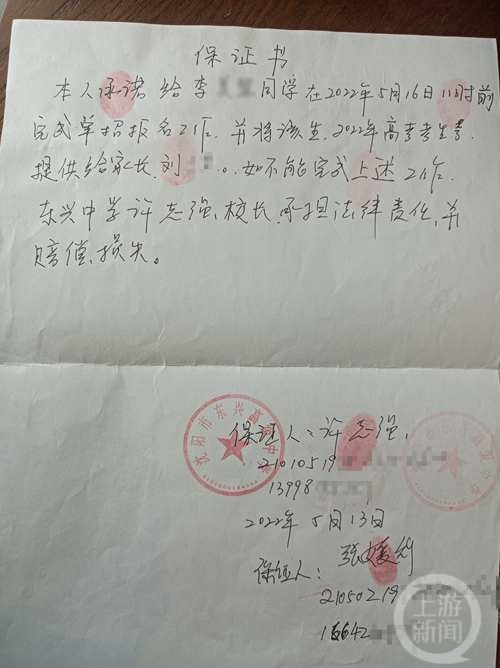 保证书
本人承诺给李 同学在2022年5月16日11时前
完成单招报名工作,并将该生,2022年高考考生号
提供给家长,刘 。如不能完成上述工作,
东兴中学许志强,校长,承担法律责任,并
赔偿,损失。
沈阳市东兴高级中学
保证人:许志强,
21010519
13998
2022年5月13日
保证人:张媛
21050219
15642
上游新闻